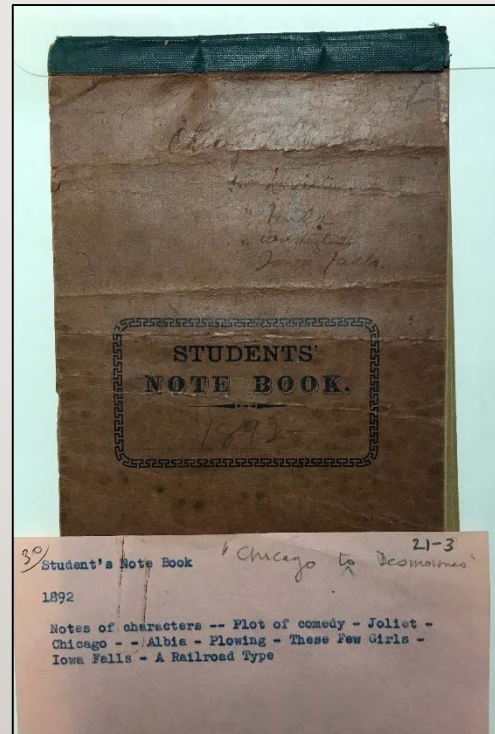 Chicago
STUDENTS'
NOTE BOOK.
1892
21-3
30/ Student's Note Book "Chicago to Desmoines"
1892
Notes of characters -- Plot of comedy - Joliet -
Chicago - - Albia - Plowing - These Few Girls -
Iowa Falls - A Railroad Type